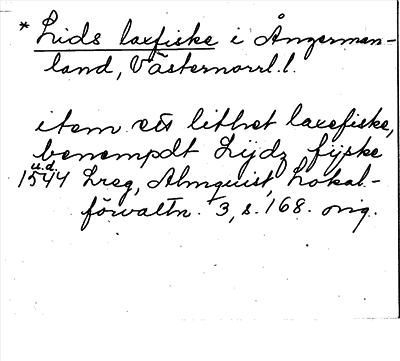 * Lids laxfiske i Ångerman-
land, Västernorrl.l.
item ett lithet laxefiske,
benempdt Lijdz fijske
u.d.
1544 Lreg, Almquist, Lokal-
förvaltn. 3, s. 168. orig.